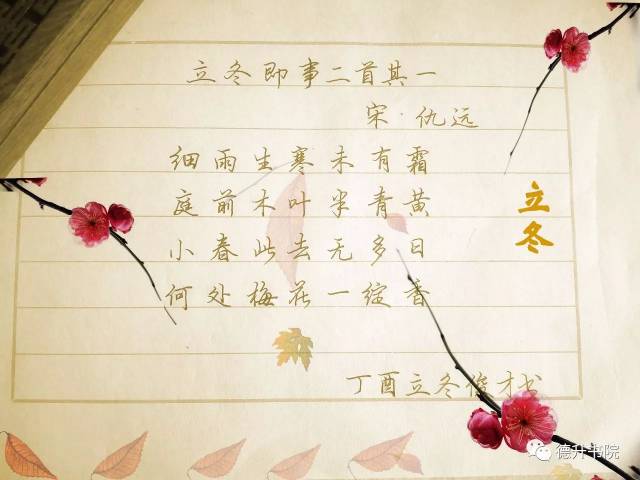 立冬即事二首其一
宋·仇远
细雨生寒未有霜
庭前木叶半青黄
小春此去无多日
何处梅花一绽香
立冬
丁酉立冬俊才书
德升书院